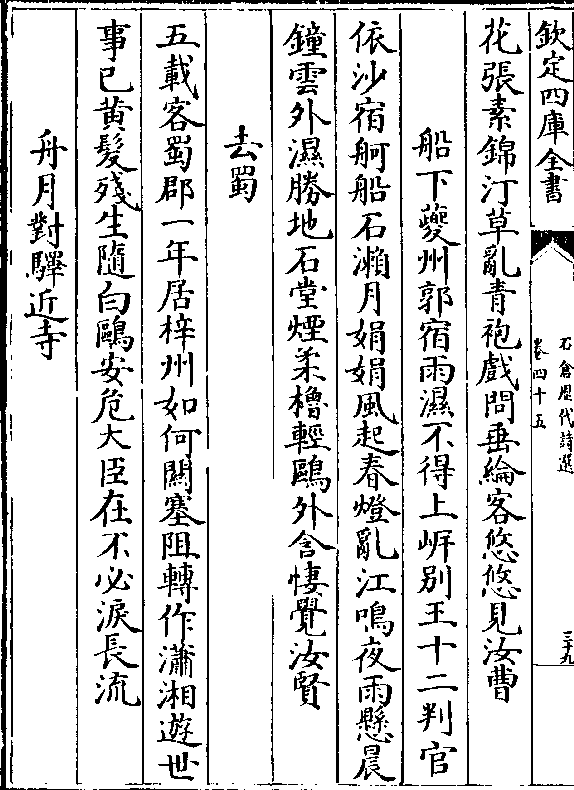 欽定四庫全書
石倉歷代詩選
卷四十五
三十九
花張素錦汀草亂青袍戲問垂綸客悠悠見汝曹
船下夔州郭宿雨濕不得上岸别王十二判官
依沙宿舸船石瀨月娟娟風起春燈亂江鳴夜雨懸晨
鐘雲外濕勝地石堂煙柔櫓輕鷗外含悽覺汝賢
去蜀
五載客蜀郡一年居梓州如何闗塞阻轉作瀟湘遊世
事已黄髮殘生隨白鷗安危大臣在不必淚長流
舟月對驛近寺